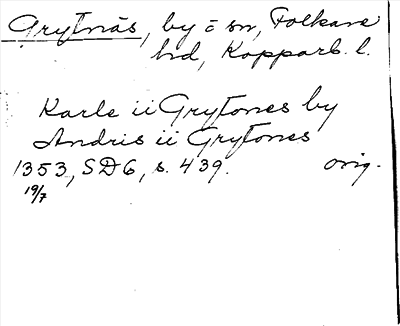 Grytnäs, by o sn, Folkare
hd, Kopparb. l.
Karle ii Grytones by
Andris ii Grytones
1353, SD6, s. 439. orig.
19/7